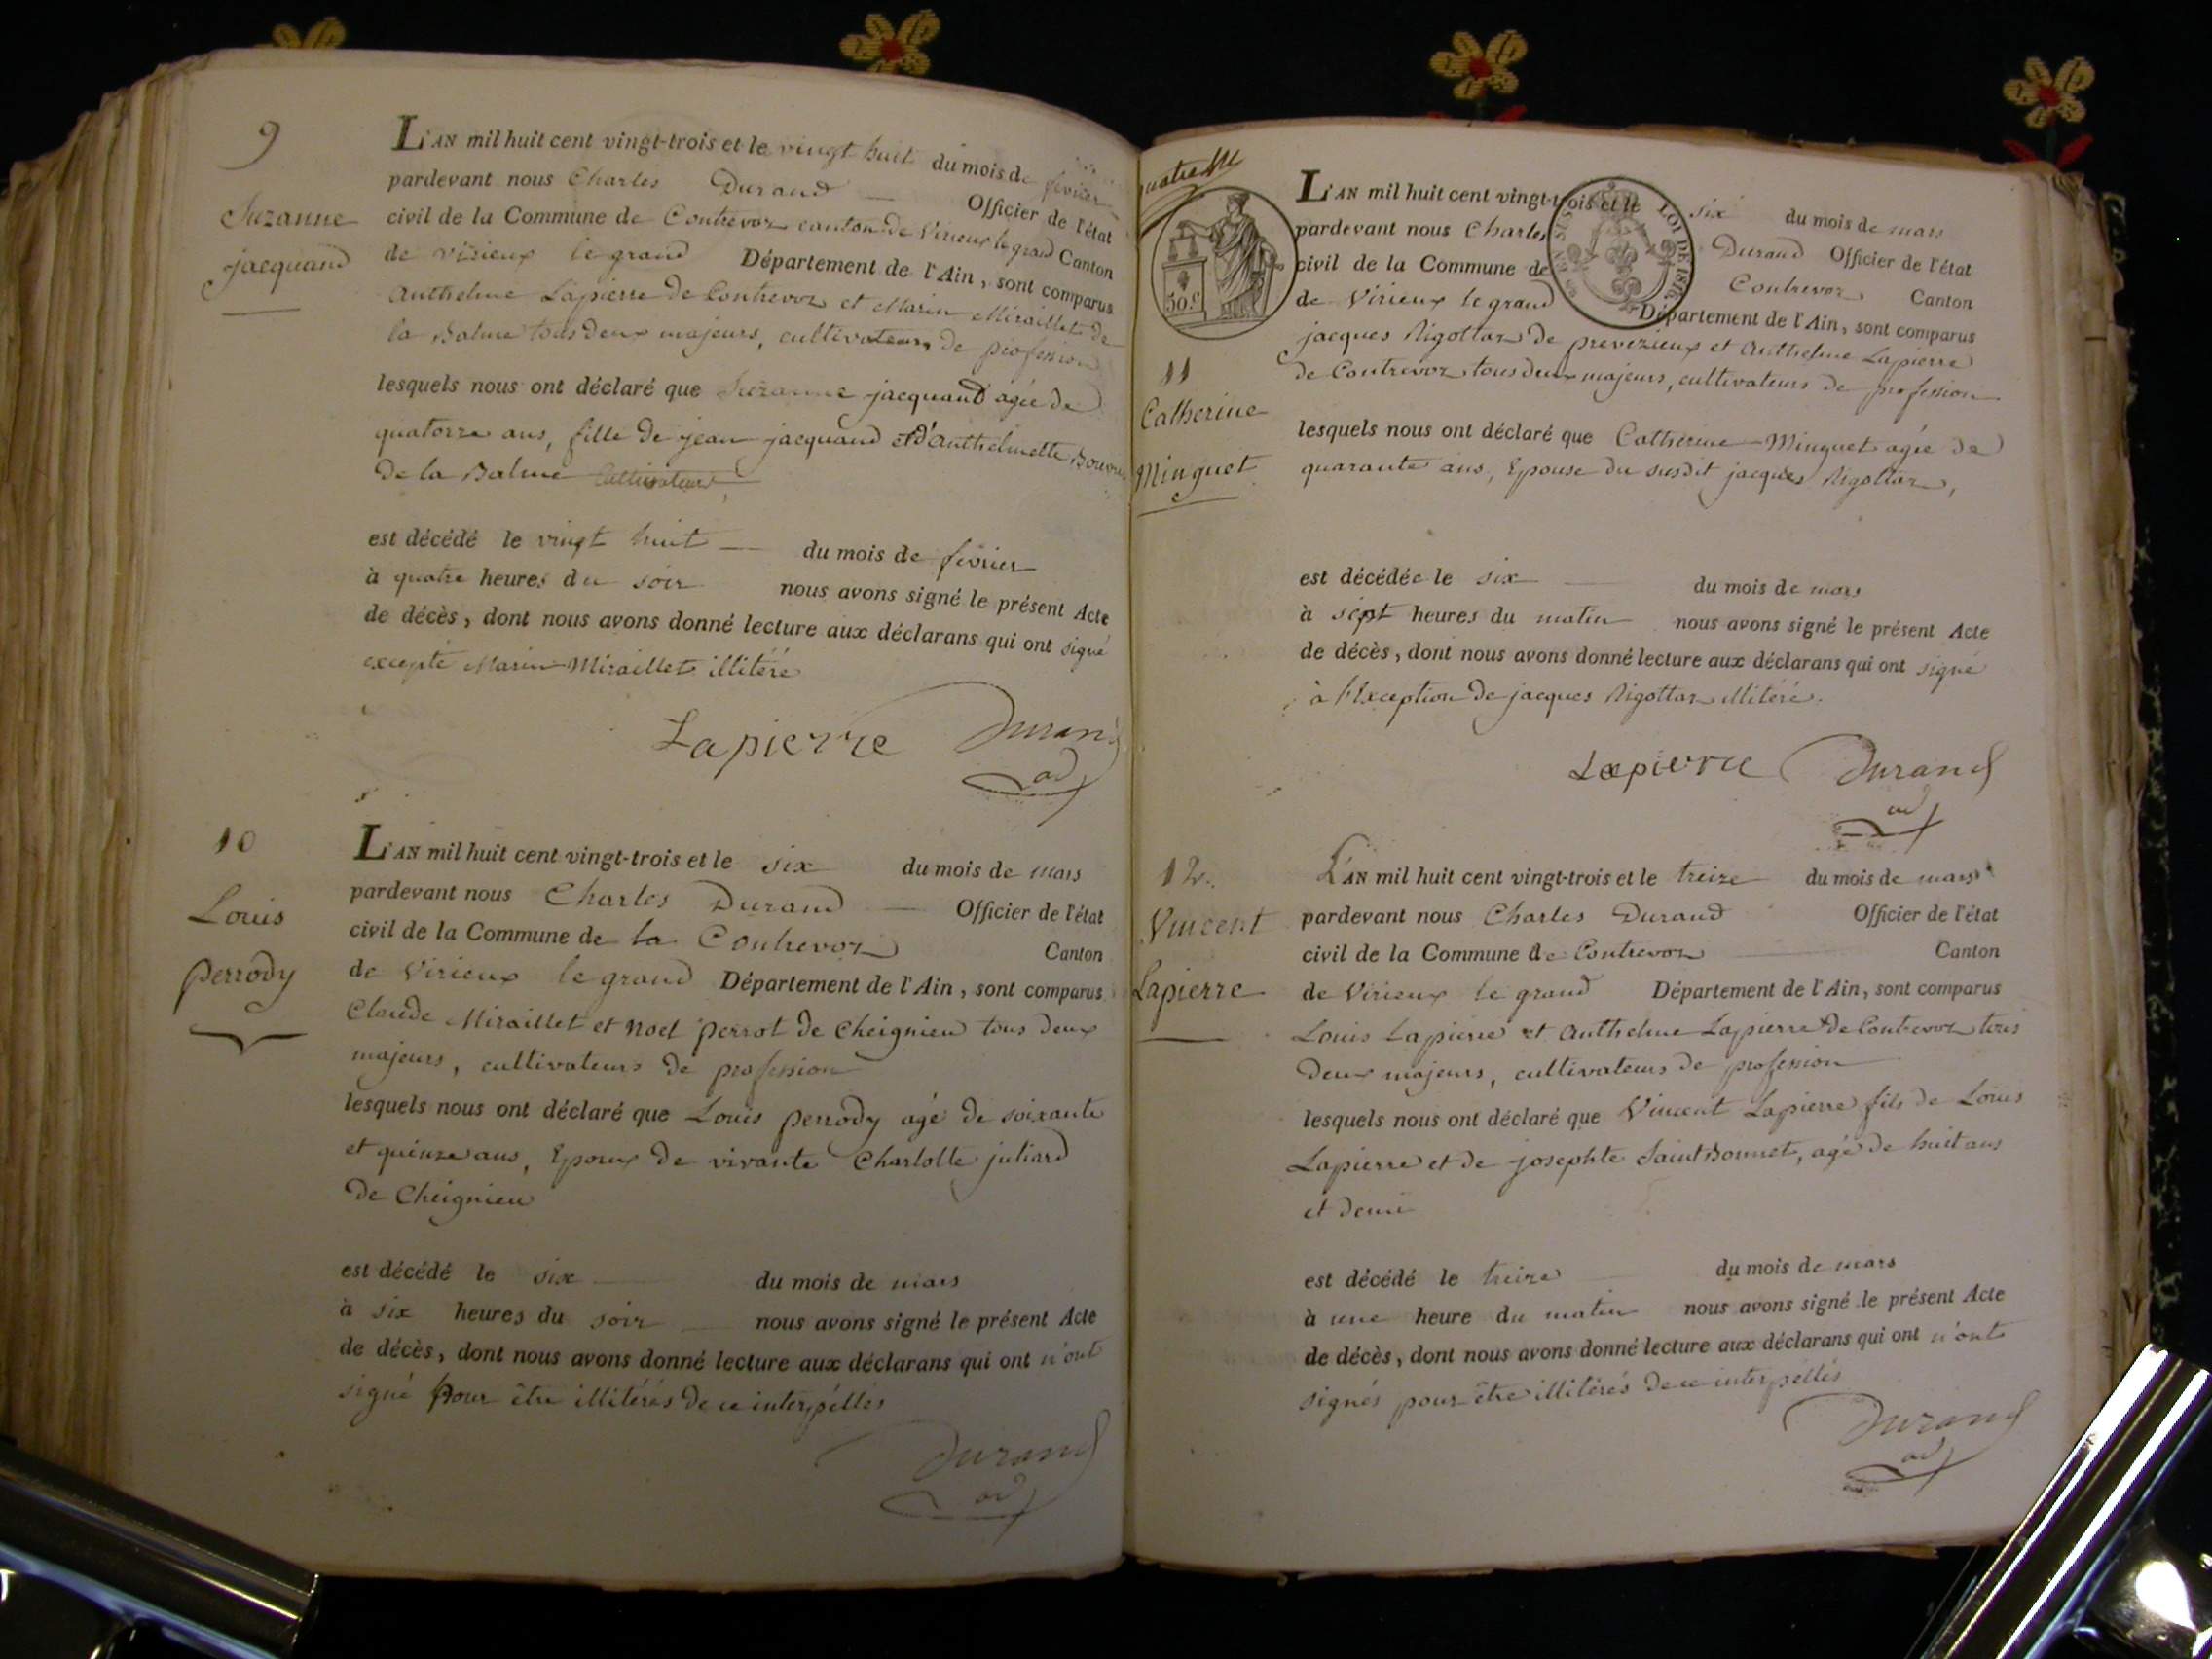 9
Suzanne
jacquand
L'AN mil huit cent vingt-trois et le vingt huit du mois de fevrier
pardevant nous Charles Durand Officier de l'état
civil de la Commune de Contrevoz canton de Virieux le grand Canton
de virieux le grand Département de l'Ain, sont comparus
Anthelme Lapierre de Contrevoz et Marin Miraillet de
la Balme tous deux majeurs, cultivateurs de profession
lesquels nous ont déclaré que Suzanne jacquand agée de
quatorze ans, fille de jean jacquand et d'Anthelmette
de la Balme Cultivateurs,
est décédé le vingt huit du mois de fevrier
à quatre heures du soir nous avons signé le présent Acte
de décès, dont nous avons donné lecture aux déclarans qui ont signé
excepté Marin Miraillet illitéré
Lapierre Durand
ad
10
Louis
perrody
L'AN mil huit cent vingt-trois et le six du mois de mars
pardevant nous Charles Durand Officier de l'état
civil de la Commune de la Contrevoz Canton
de Virieux le grand Département de l'Ain, sont comparus
Claude Miraillet et Noel perrot de Cheignieu tous deux
majeurs, cultivateurs de profession
lesquels nous ont déclaré que Louis perrody agé de soixante
et quinze ans, Epoux de vivante Charlotte juliard
de Cheignieu
est décédé le six du mois de mars
à six heures du soir nous avons signé le présent Acte
de décès, dont nous avons donné lecture aux déclarans qui ont n'ont
signé pour être illitérés de ce interpéllés
Durand
ad
50.c
LOI DE 1816
11
Catherine
Minguet
L'AN mil huit cent vingt-trois et le six du mois de mars
pardevant nous Charles Durand Officier de l'état
civil de la Commune de Contrevoz Canton
de Virieux le grand Département de l'Ain, sont comparus
jacques Rigottaz de prevezieux et Anthelme Lapierre
de Contrevoz tous deux majeurs, cultivateurs de profession
lesquels nous ont déclaré que Catherine Minguet agée de
quarante ans, Epouse du susdit jacques Rigottaz,
est décédée le six du mois de mars
à sept heures du matin nous avons signé le présent Acte
de décès, dont nous avons donné lecture aux déclarans qui ont signé
à l'Exception de jacques Rigottaz illitéré.
Lapierre Durand
ad
12.
Vincent
Lapierre
L'AN mil huit cent vingt-trois et le treize du mois de mars
pardevant nous Charles Durand Officier de l'état
civil de la Commune de Contrevoz Canton
de Virieux le grand Département de l'Ain, sont comparus
Louis Lapierre et Anthelme Lapierre de Contrevoz tous
deux majeurs, cultivateurs de profession
lesquels nous ont déclaré que Vincent Lapierre fils de Louis
Lapierre et de josephte Saint Bonnet, agé de huit ans
et demi
est décédé le treize du mois de mars
à une heure du matin nous avons signé le présent Acte
de décès, dont nous avons donné lecture aux déclarans qui ont n'ont
signés pour être illitérés de ce interpéllés
Durand
ad